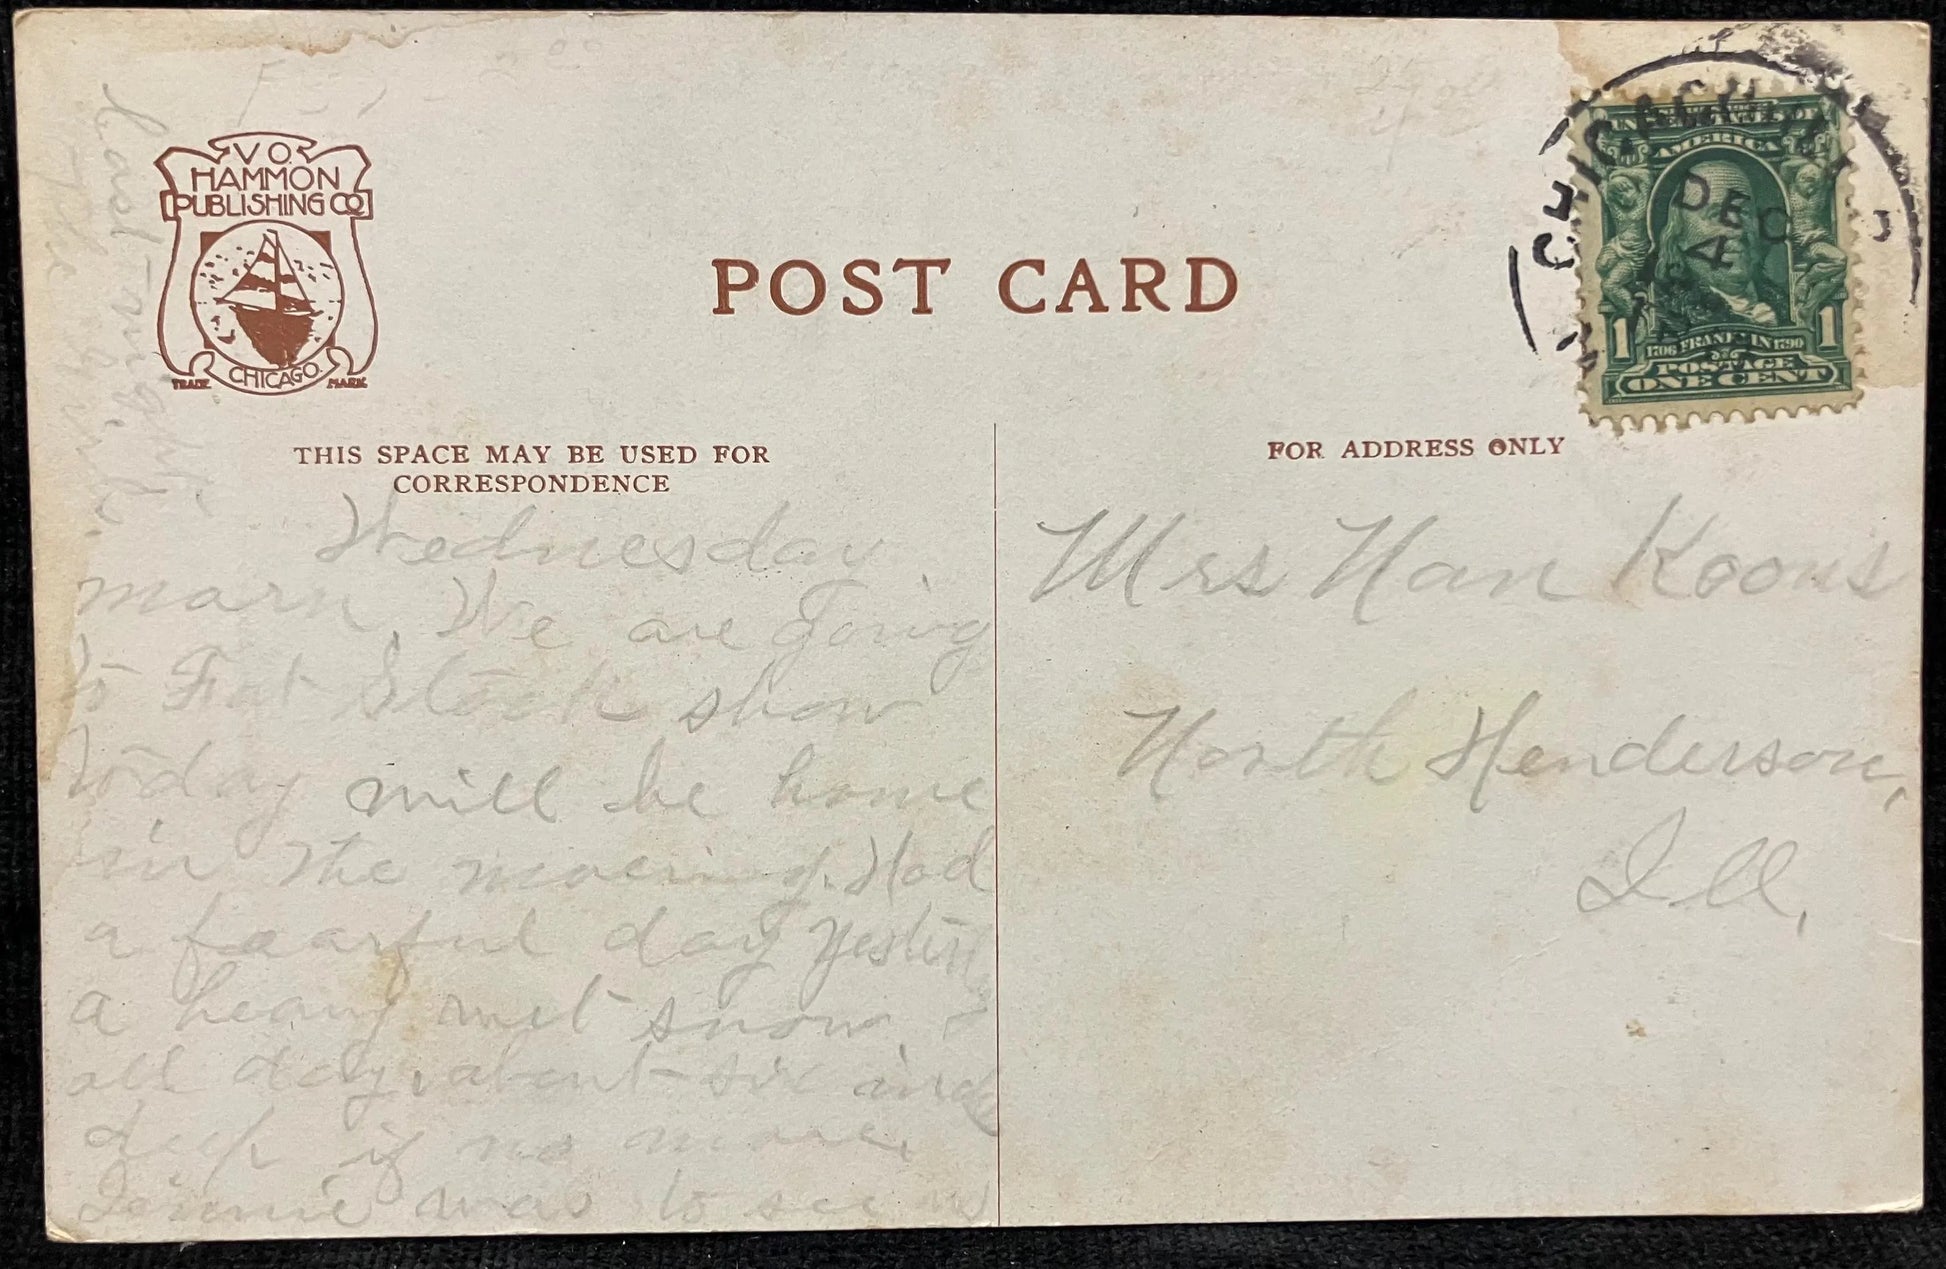 V. O.
HAMMON
PUBLISHING CO.
CHICAGO.
TRADE MARK
POST CARD
THIS SPACE MAY BE USED FOR
CORRESPONDENCE
FOR ADDRESS ONLY
CHICAGO, ILL.
DEC
4
UNITED STATES OF
AMERICA
1 1706 FRANKLIN 1790 1
POSTAGE
ONE CENT
Wednesday
morn, We are going
to Fat Stock show
today will be home
in the morning. Had
a fearful day yester
a heavy wet snow
all day, about six inch
deep if no more.
Jennie was to see us
last night.
Mrs Nan Koons
North Henderson,
Ill,